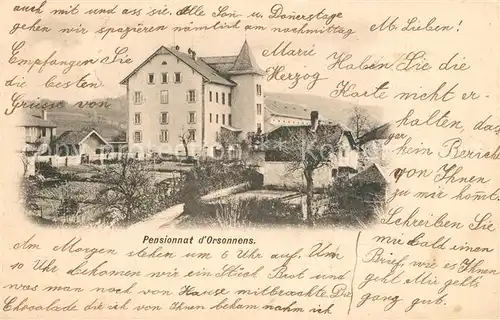 auch mit und ass sie. Alle Son- u. Donerstage
gehen wir spazieren nämlich am nachmittag
Empfangen Sie
die besten
Grüsse von
Marie
Herzog
M. Lieben!
Haben Sie die
Karte nicht er-
halten, das
gar
kein Bericht
von Ihnen
zu mir komt.
Schreiben Sie
mir bald einen
Brief, wie es Ihnen
geht. Mir gehts
ganz gut.
Pensionnat d'Orsonnens.
Am Morgen stehen um 6 Uhr auf. Um
10 Uhr bekomen wir ein Stück Brot und
was man noch von Hause mitbrachte. Die
Chocolade die ich von Ihnen bekam nahm ich